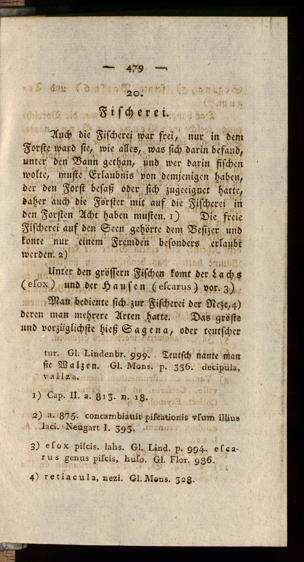 — 479 —
20.
Fischerei.
Auch die Fischerei war frei, nur in dem
Forste ward sie, wie alles, was sich darin befand,
unter den Bann gethan, und wer darin fischen
wolte, muste Erlaubnis von demjenigen haben,
der den Forst besaß oder sich zugeeignet hatte,
daher auch die Förster mit auf die Fischerei in
den Forsten Acht haben musten. 1) Die freie
Fischerei auf den Seen gehörte dem Besizer und
konte nur einem Fremden besonders erlaubt
werden. 2)
Unter den grössern Fischen komt der Lachs
(esox) und der Hausen (escarus) vor. 3)
Man bediente sich zur Fischerei der Neze, 4)
deren man mehrere Arten hatte. Das gröste
und vorzüglichste hieß Sagena, oder teutscher
tur. Gl. Lindenbr. 999. Teutsch nante man
sie Walzen. Gl. Mons. p. 336. decipula,
valiza.
1) Cap. II. a. 813. n. 18.
2) a. 875. concambiauit piscationis vsum illius
laci. Neugart I. 395.
3) esox piscis. lahs. Gl. Lind. p. 994. esca-
rus genus piscis, huso. Gl. Flor. 986.
4) retiacula, nezi. Gl. Mons. 328.